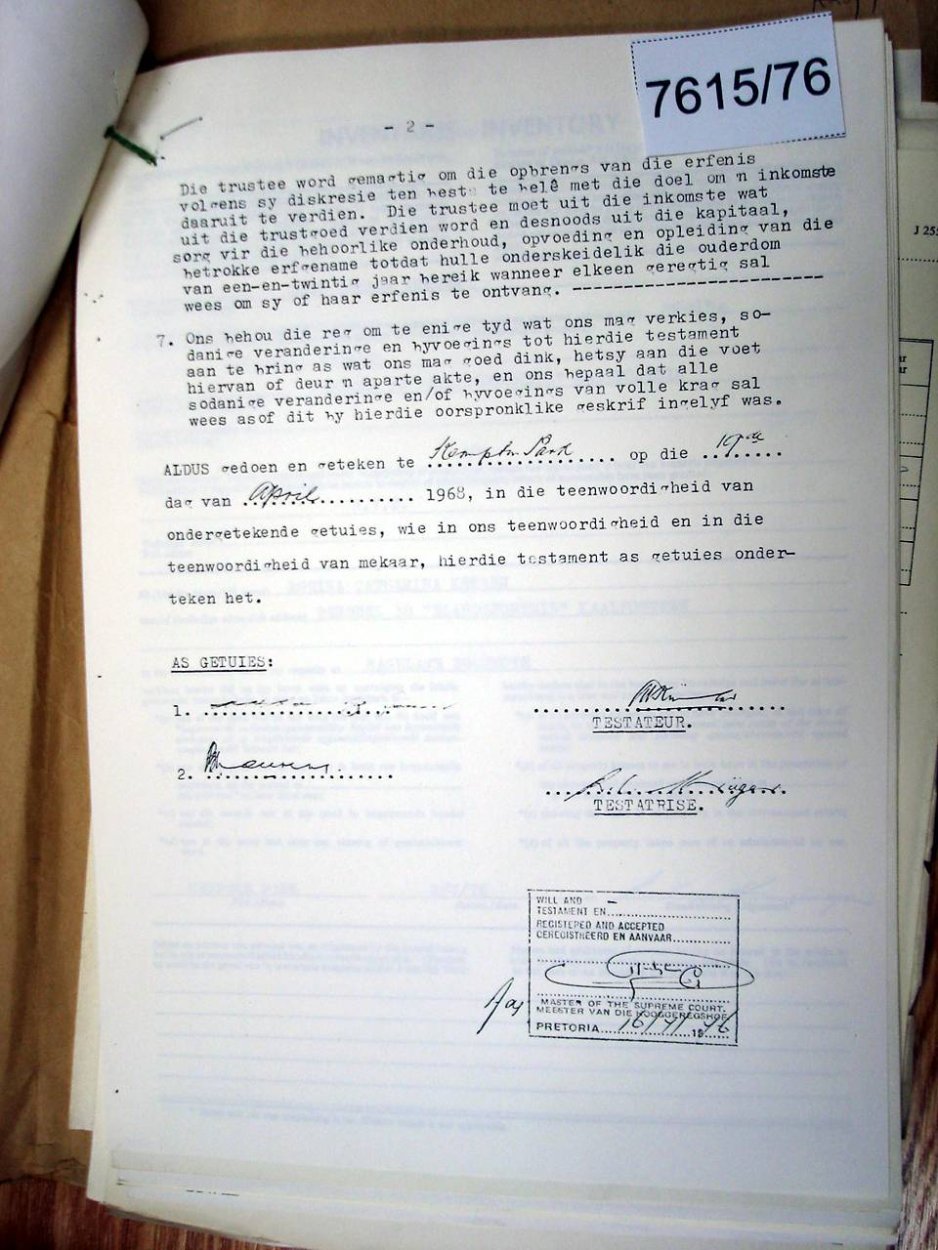 7615/76
- 2 -
Die trustee word gemagtig om die opbrengs van die erfenis
volgens sy diskresie ten beste te belê met die doel om 'n inkomste
daaruit te verdien. Die trustee moet uit die inkomste wat
uit die trustgoed verdien word en desnoods uit die kapitaal,
sorg vir die behoorlike onderhoud, opvoeding en opleiding van die
betrokke erfgename totdat hulle onderskeidelik die ouderdom
van een-en-twintig jaar bereik wanneer elkeen geregtig sal
wees om sy of haar erfenis te ontvang. ----------------------
7. Ons behou die reg om te enige tyd wat ons mag verkies, so-
danige veranderinge en byvoegings tot hierdie testament
aan te bring as wat ons mag goed dink, hetsy aan die voet
hiervan of deur 'n aparte akte, en ons bepaal dat alle
sodanige veranderinge en/of byvoegings van volle krag sal
wees asof dit by hierdie oorspronklike geskrif ingelyf was.
ALDUS gedoen en geteken te Kempton Park op die
dag van April 1968, in die teenwoordigheid van
ondergetekende getuies, wie in ons teenwoordigheid en in die
teenwoordigheid van mekaar, hierdie testament as getuies onder-
teken het.
AS GETUIES:
1.
TESTATEUR.
2.
TESTATRISE.
WILL AND
TESTAMENT EN
REGISTERED AND ACCEPTED
GEREGISTREERD EN AANVAAR
MASTER OF THE SUPREME COURT.
MEESTER VAN DIE HOOGGEREGSHOF
PRETORIA 16/11/1976
J 25
INVENTORY